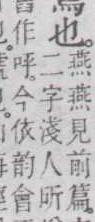 也。燕燕見前篇。
二字淺人所
舊作呼。今依韵會